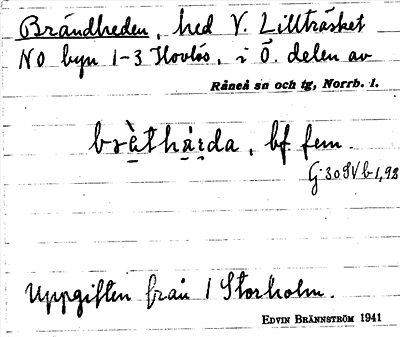 Brändheden, hed V. Lillträsket
NO byn 1-3 Hovlös, i Ö. delen av
Råneå sn och tg, Norrb. l.
brèthä̀ɪda, bf. fem.
G 30 SV b 1, 93
Uppgiften från 1 Storholm.
EDVIN BRÄNNSTRÖM 1941